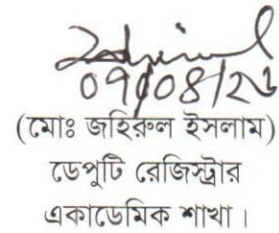 09/08/2৬
(মোঃ জহিরুল ইসলাম)
ডেপুটি রেজিস্ট্রার
একাডেমিক শাখা।